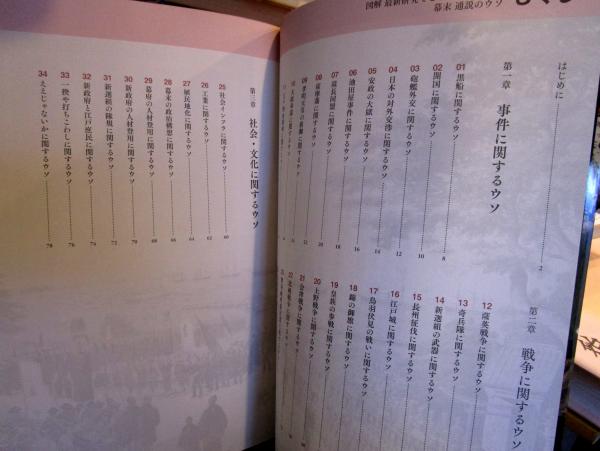 図解 最新研究で
幕末 通説のウソ
はじめに 2
第一章 事件に関するウソ
01 黒船に関するウソ 8
02 開国に関するウソ 10
03 砲艦外交に関するウソ 12
04 日本の対外交渉に関するウソ 14
05 安政の大獄に関するウソ 16
06 池田屋事件に関するウソ
07 薩長同盟に関するウソ
08 薩摩藩に関するウソ
09 孝明天皇の
第二章 戦争に関するウソ
12 薩英戦争に関するウソ
13 奇兵隊に関するウソ
14 新選組の武器に関するウソ
15 長州征伐に関するウソ
16 江戸城に関するウソ
17 鳥羽伏見の戦いに関するウソ
18 錦の御旗に関するウソ
19 皇族の参戦に関するウソ
20 上野戦争に関するウソ
21 会津戦争に関するウソ
22
第三章 社会・文化に関するウソ
25 社会インフラに関するウソ 60
26 工業に関するウソ 62
27 植民地化に関するウソ 64
28 幕末の政治構想に関するウソ 66
29 幕府の人材登用に関するウソ 68
30 新政府の人材登用に関するウソ 70
31 新選組の隊規に関するウソ 72
32 新政府と江戸庶民に関するウソ 74
33 一揆や打ちこわしに関するウソ 76
34 ええじゃないかに関するウソ 78